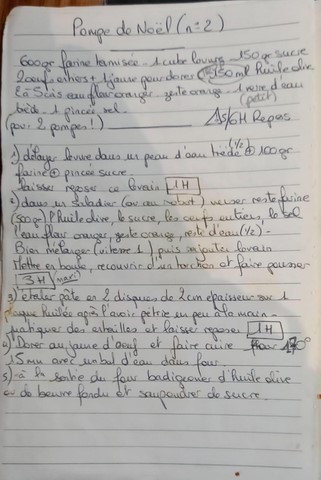 Pompe de Noël (n°2)
600gr farine tamisée - 1 cube levure - 150gr sucre
2 oeufs entiers + 1 jaune pour dorer - 150ml huile olive
2 à 5 c.s eau fleur oranger - zeste orange - 1 verre d'eau
(petit)
tiède - 1 pincée sel
(pour 2 pompes!) 15/6H Repos
1) délayer levure dans un peu d'eau tiède (1/2) + 100gr
farine + pincée sucre
laisser reposer ce levain 1H
2) dans un saladier (ou au robot) verser reste farine
(500gr) l'huile olive, le sucre, les oeufs entiers, le sel
l'eau fleur oranger, zeste orange, reste d'eau (1/2) -
Bien mélanger (vitesse 1) puis rajouter levain
Mettre en boule, recouvrir d'un torchon et faire pousser
3H (maxi)
3) étaler pâte en 2 disques de 2cm epaisseur sur 1
plaque huilée après l'avoir petrie un peu à la main -
pratiquer des entailles et laisser reposer 1H
4) Dorer au jaune d'oeuf et faire cuire four 170°
15mn avec un bol d'eau dans four.
5) à la sortie du four badigeonner d'huile olive
ou de beurre fondu et saupoudrer de sucre.